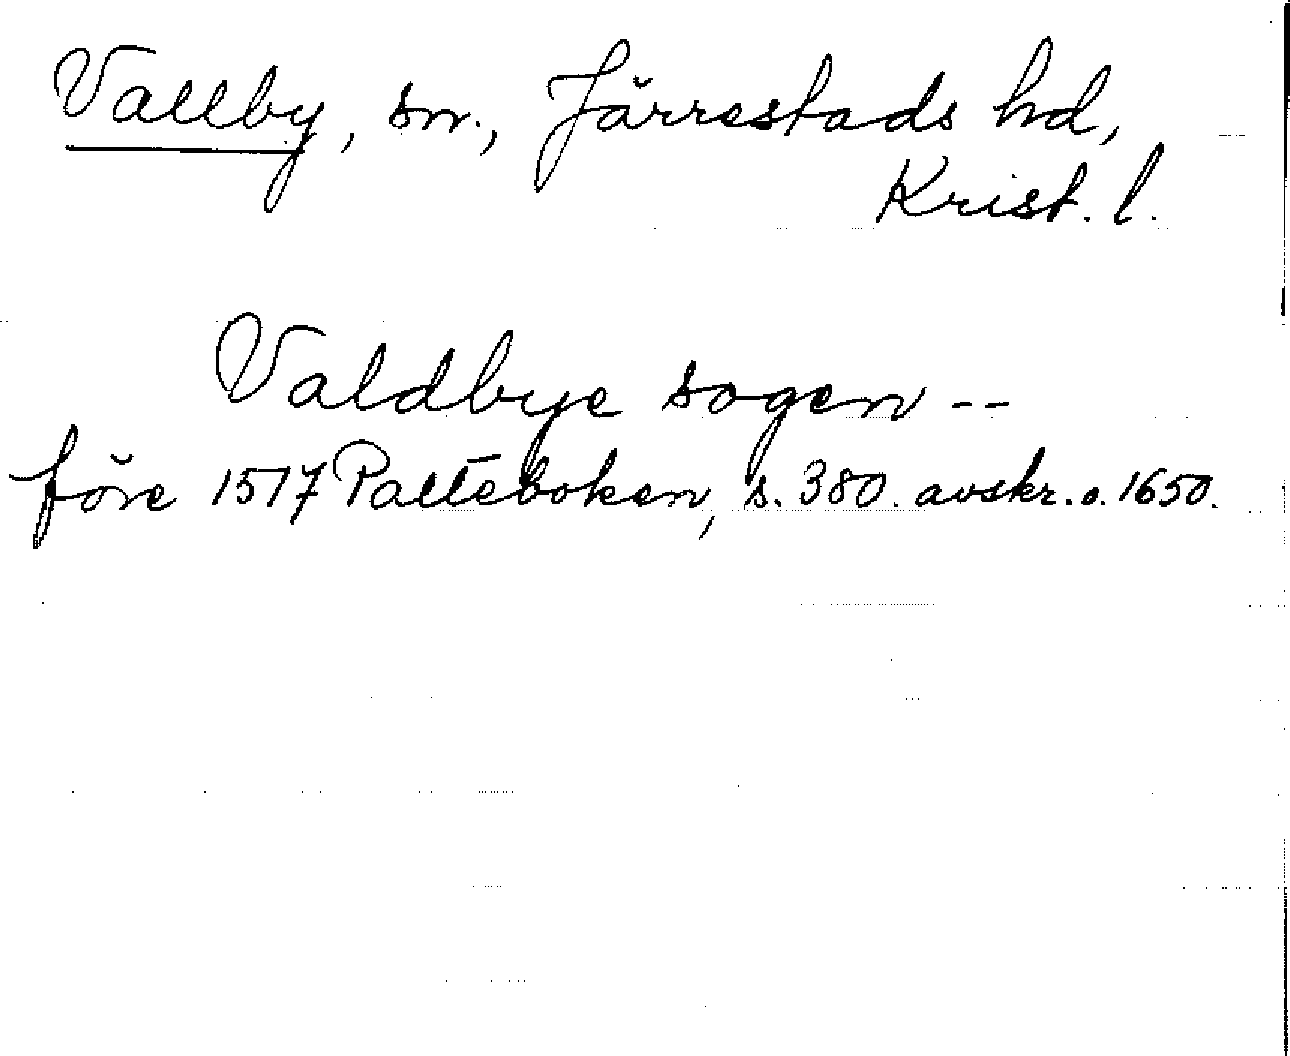 Vallby, sn., Järrestads hd,
Krist. l.
Valdbye sogen --
före 1517 Palteboken, s. 380. avskr. o. 1650.